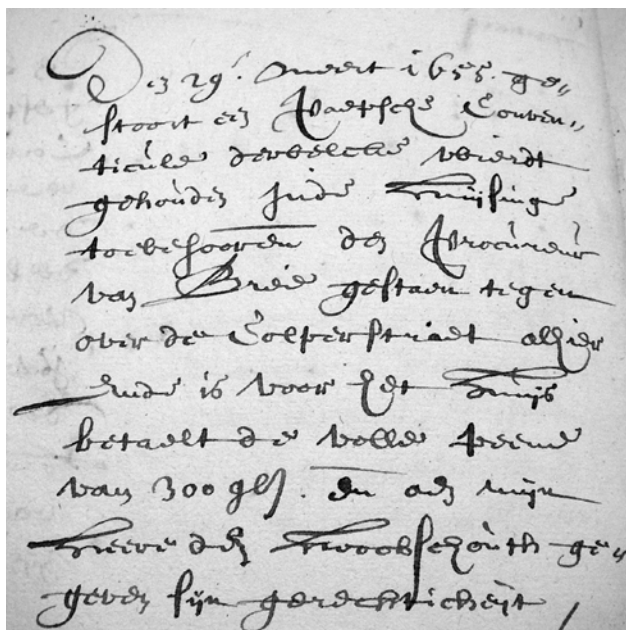 Den 29.' Meert 1655. ge„
stoort een Paepsche Conven„
ticule dewelcke wierdt
gehouden inde Huijsinge
toebehooren den Procureur
van Bree gestaen tegen
over de Colperstraet alhier
Ende is voor het Huijs
betaelt de volle peene
van 300 gls. En aen mijn
Heere den Hooofschouth ge„
geven sijn gerechticheijt